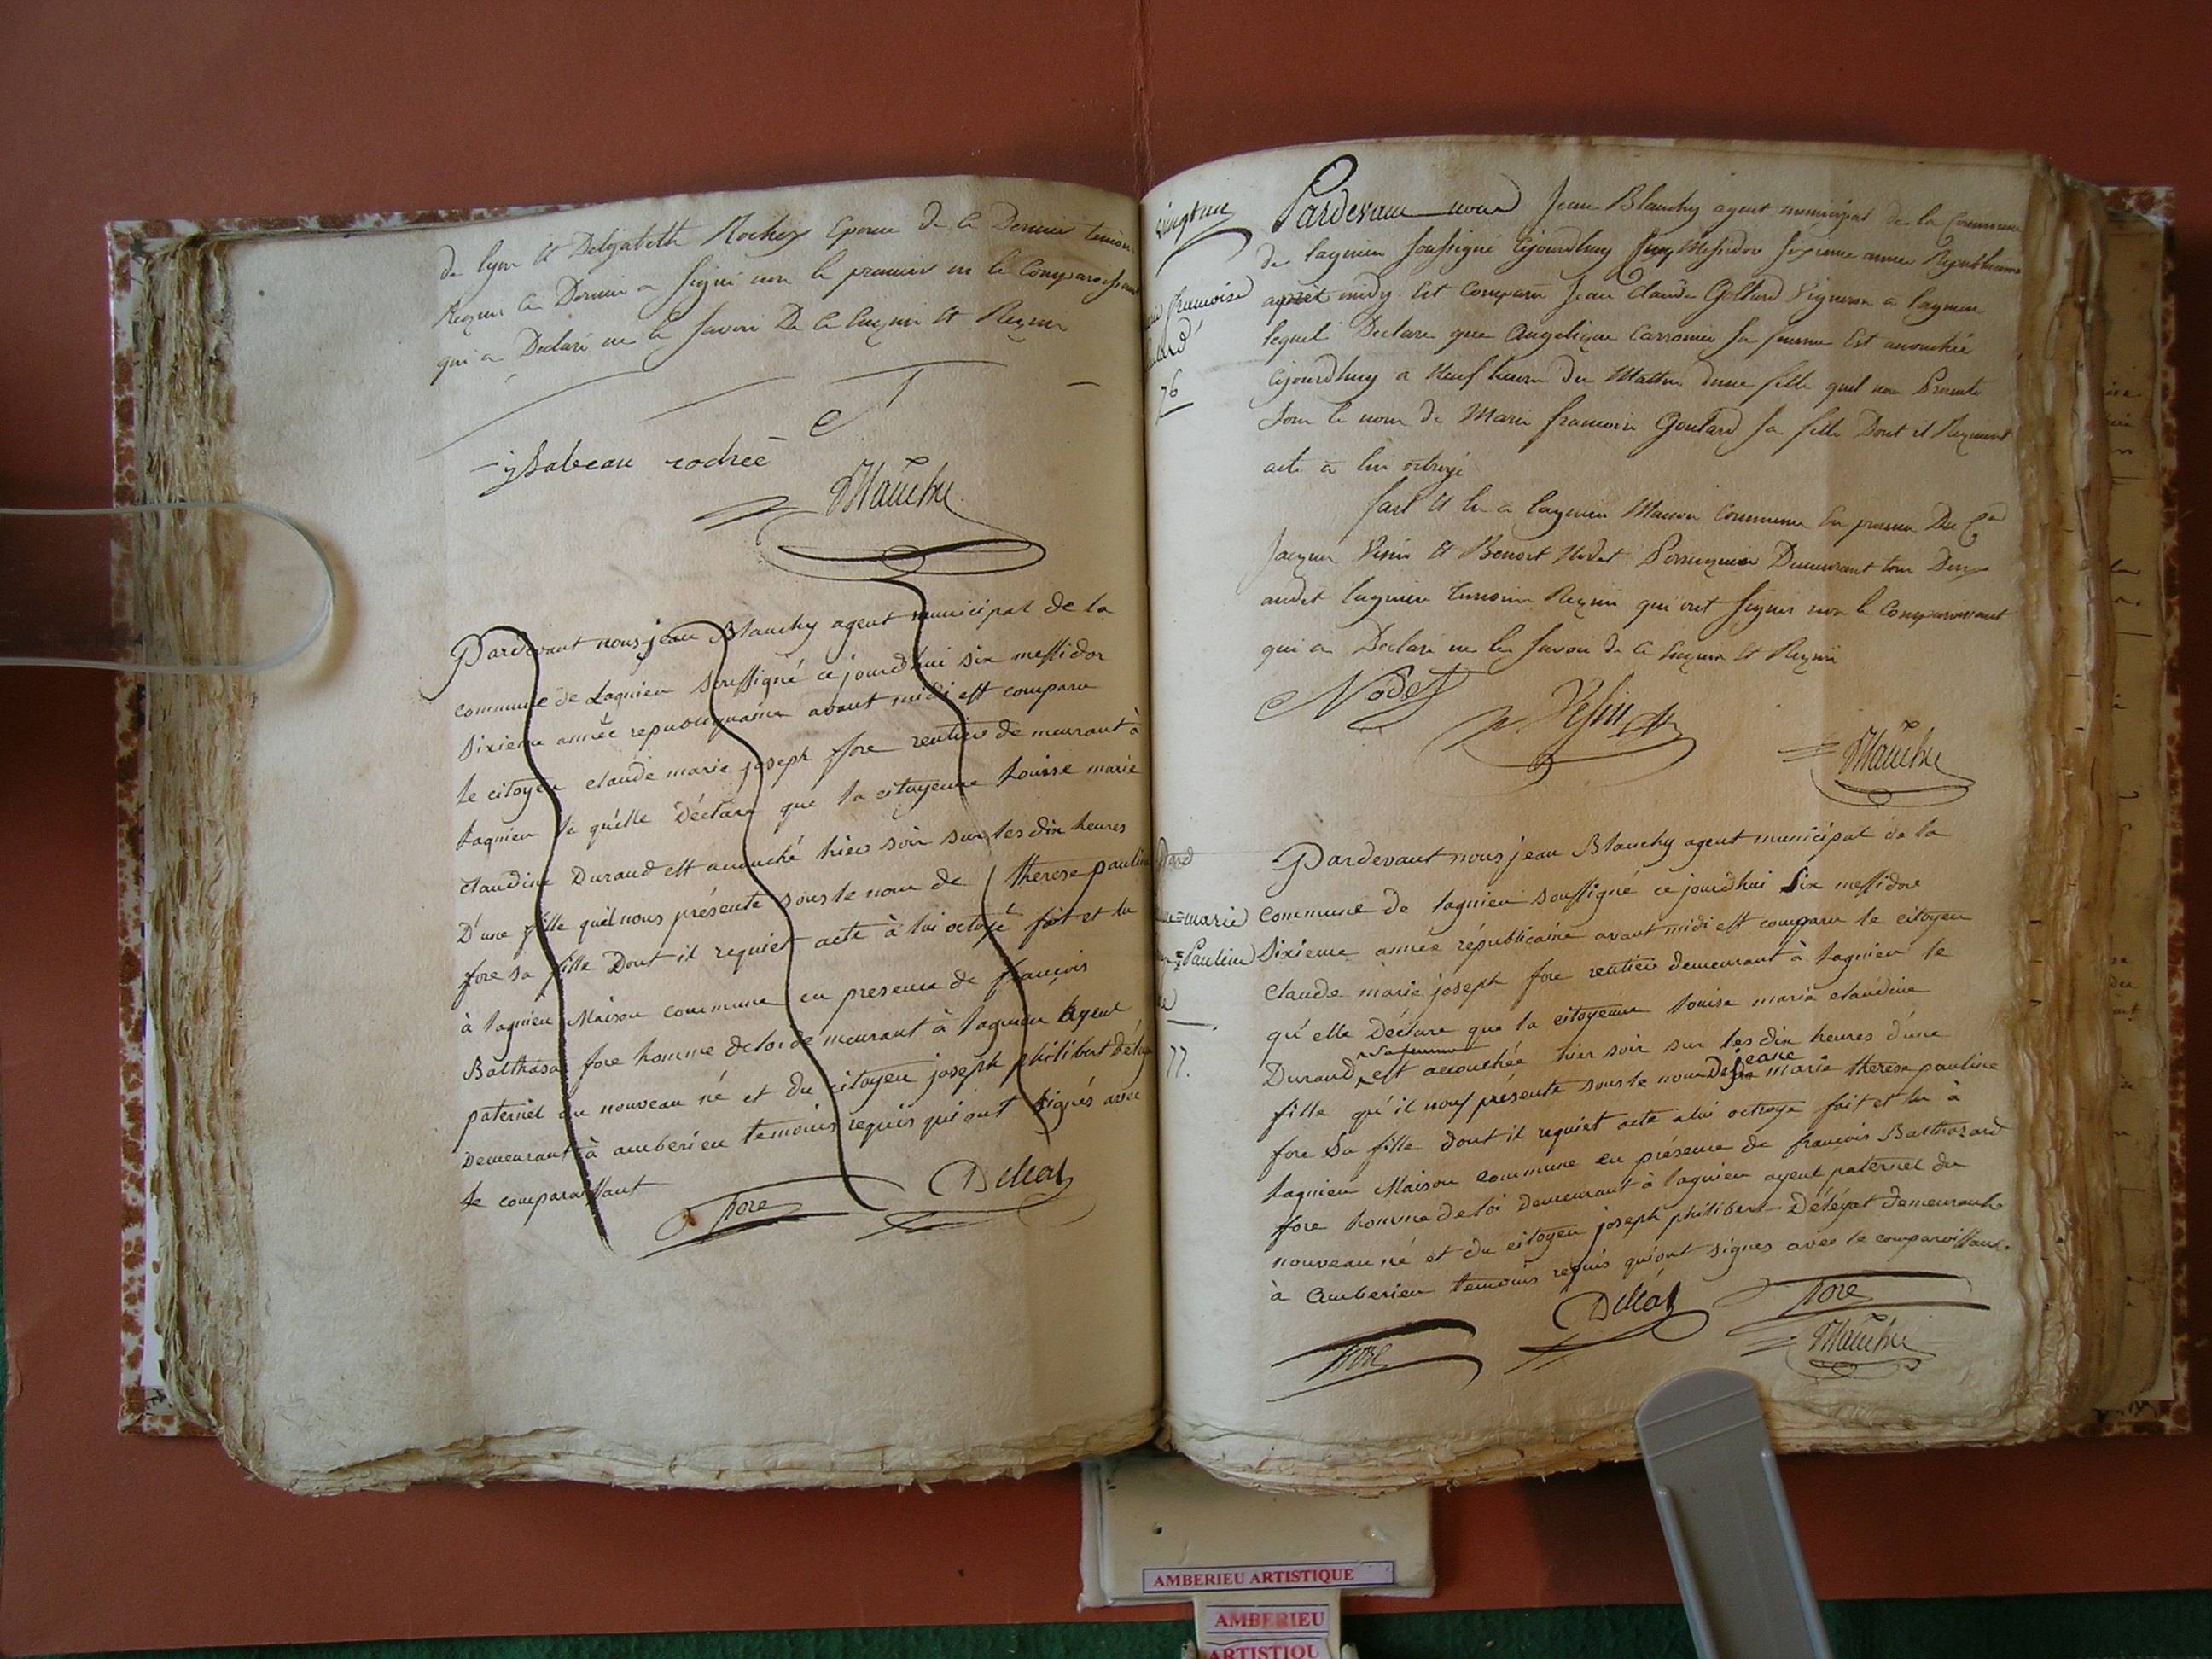 de lyon et Delizabeth Rochex Epouse de Ce Dernier temoin
Requis Ce Dernier a signé non le premier ni le Comparoissant
qui a Declaré ne le savoir De Ce Enquis et Requis
ysabeau rochée
Blanchy
Pardevant nous jean Blanchy agent municipal de la
commune de Lagnieu soussigné ce jourdhui six messidor
sixieme année republiquaine avant midi est comparu
le citoyen claude marie joseph fore rentier de meurant à
Lagnieu le quelle Déclare que la citoyenne Louise marie
claudine Durand est acouché hier soir sur les dix heures
D'une fille quil nous présente sous le nom de therese pauline
fore sa fille Dont il requiet acte à lui octoyé fait et lu
à Lagnieu Maison commune en presence de françois
Balthasar fore homme de loi de meurant à Lagnieu Ayeul
paternel du nouveau né et du citoyen joseph philibert
Demeurant à amberieu temoins requis qui ont signés avec
le comparaissant
fore
Délléat
vingt un
françoise
76
Pardevant nous Jean Blanchy agent municipal de la Commune
de lagnieu soussigné Cejourdhuy Messidor sixieme année Republicaine
apret midy Est Comparu Jean Claude Gollard Vigneron a lagnieu
lequel Declare que Angelique Carronier sa femme Est acouchée
Cejourdhuy a Neuf heures du Mattin dune fille quil nous Presente
sous le nom de Marie francoise Goulard sa fille Dont il Requiert
acte a lui octroyé
fait et lu a lagnieu Maison Commune En presence Des Cens
Jacques Vesin et Benoit Nodet Perruquier Demeurant tous Deux
audit lagnieu temoins Requis qui ont signés non le Comparoissant
qui a Declaré ne le savoir de Ce Enquis et Requis
Nodet
Vesin
Blanchy
marie
Pauline
77.
Pardevant nous jean Blanchy agent municipal de la
commune de lagnieu soussigné ce jourdhui six messidor
sixieme année républicaine avant midi est comparu le citoyen
claude marie joseph fore rentier demeurant à Lagnieu le
qu'elle Déclare que la citoyenne Louise marie claudine
Durand sa femme est acouchée hier soir sur les dix heures d'une
fille qu'il nous présente sous le nom de jeane marie therese pauline
fore sa fille dont il requiet acte a lui octroye fait et lu à
Lagnieu Maison commune en présence de françois Balthazard
fore homme de loi demeurant à lagnieu ayeul paternel du
nouveau né et du citoyen joseph philibert Déléyat demeurant
à Amberieu temoins requis qui ont signes avec le comparoissant.
Délléat
fore
fore
Blanchy
AMBERIEU ARTISTIQUE
AMBERIEU